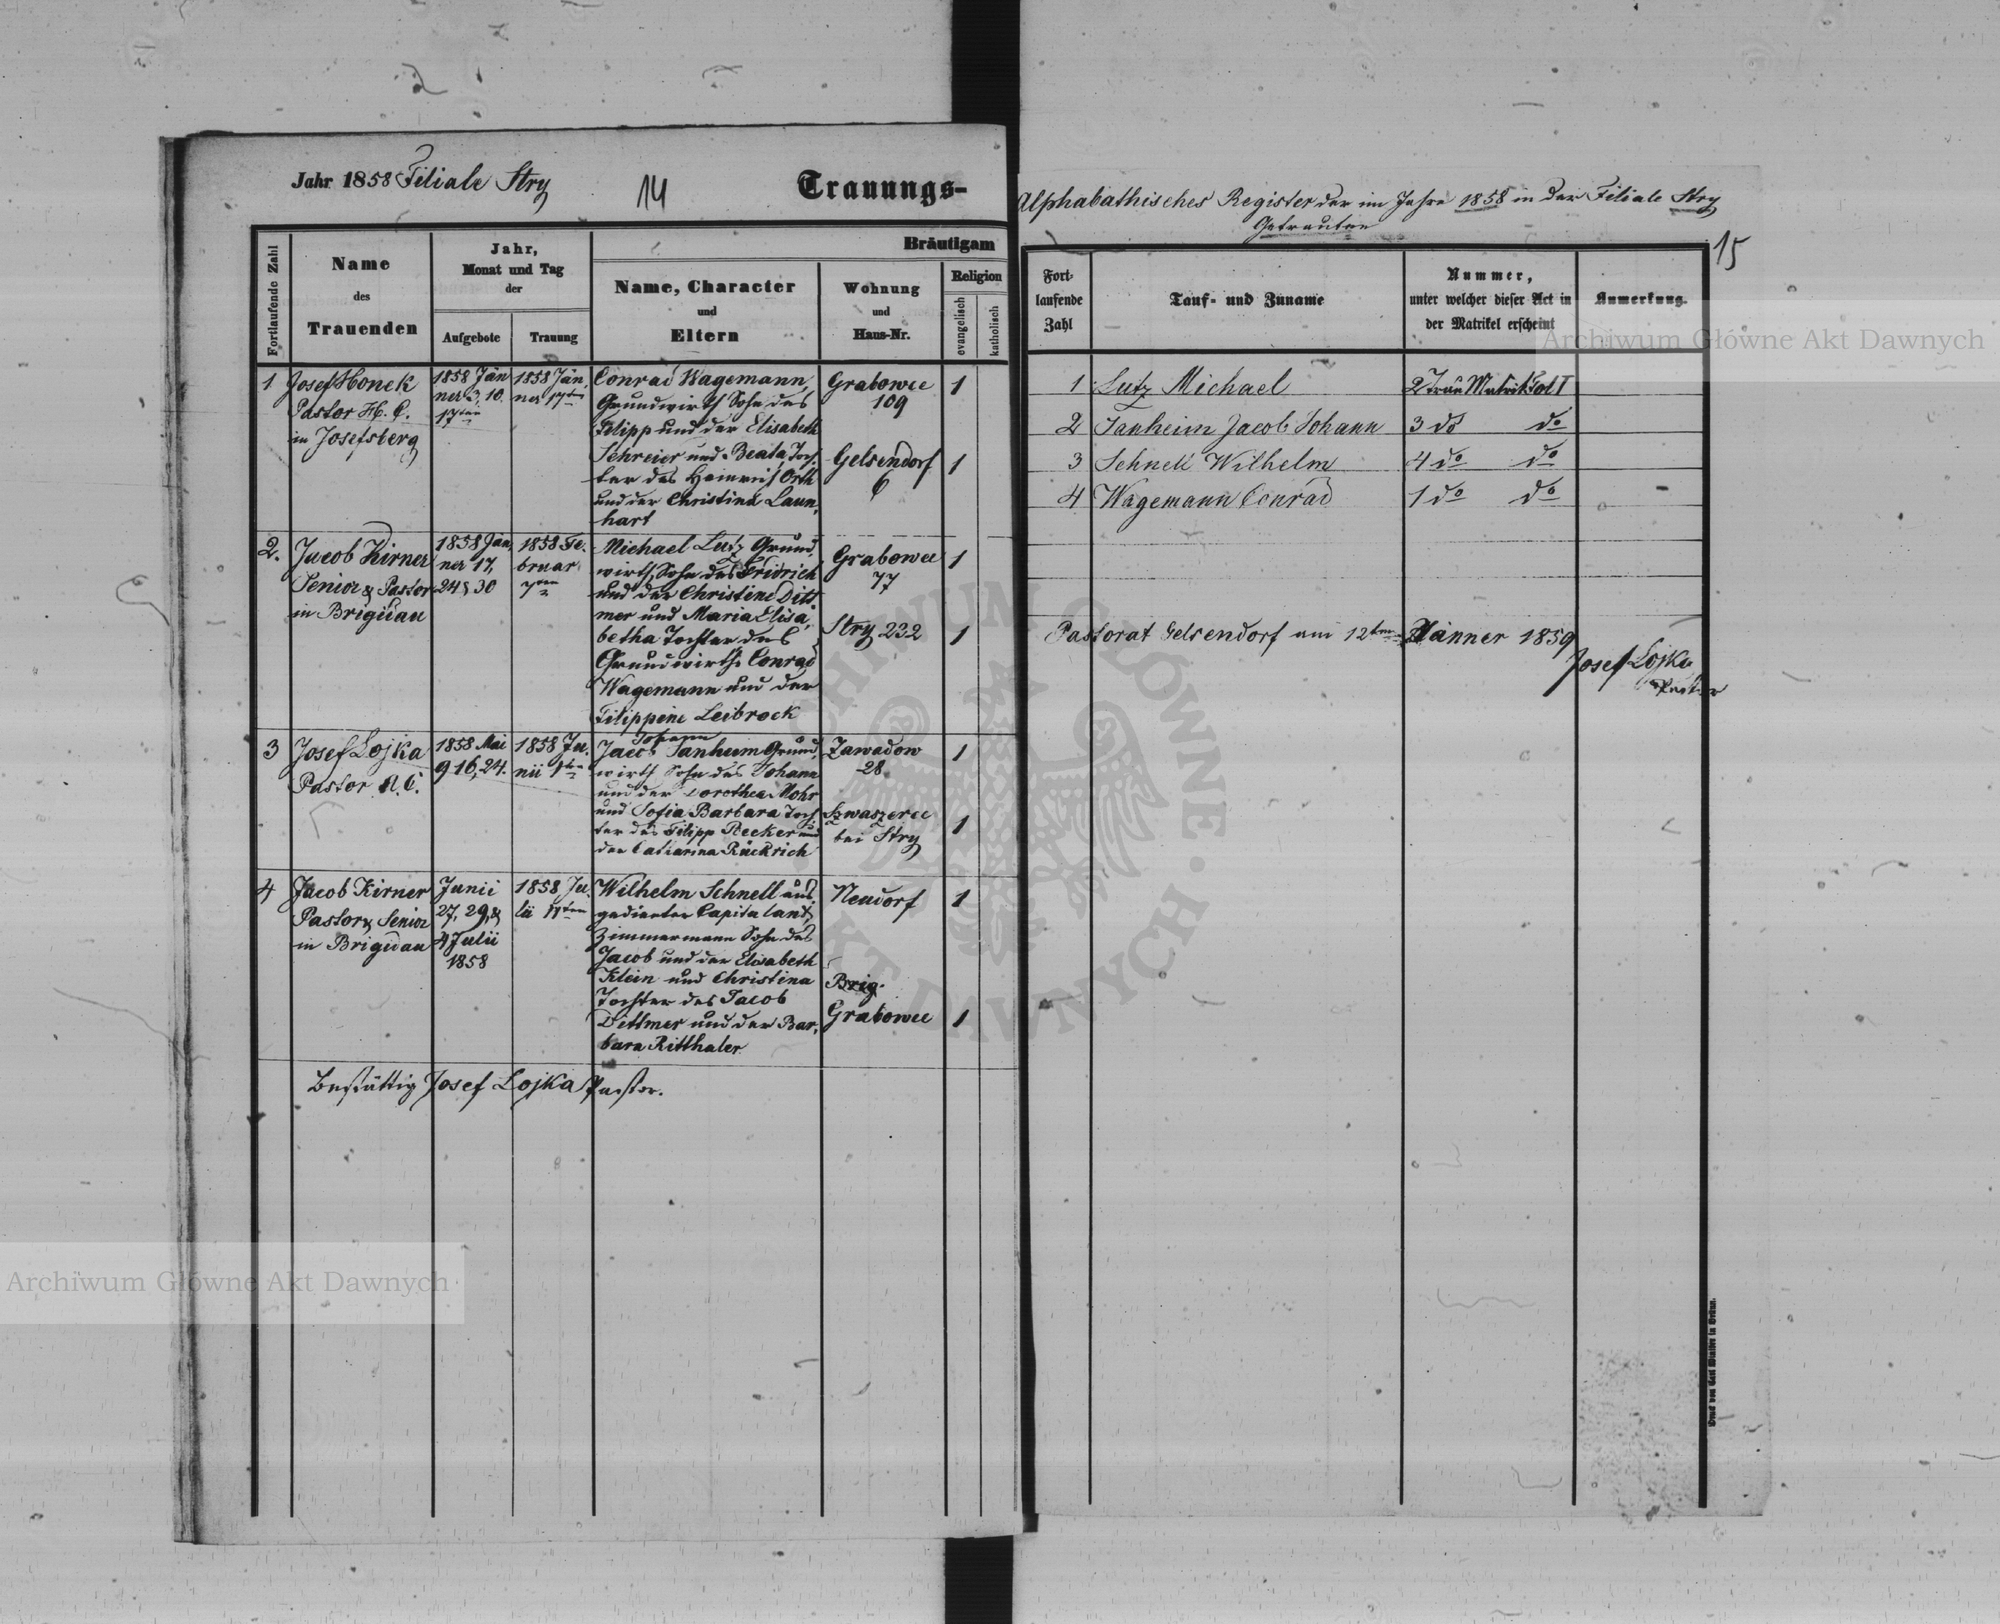 Jahr 1858 Filiale Stry
14
Trauungs-
Fortlaufende Zahl
Name
des
Trauenden
Jahr,
Monat und Tag
der
Aufgebote
Trauung
Bräutigam
Name, Character
und
Eltern
Wohnung
und
Haus-Nr.
Religion
evangelisch
katholisch
1
Josef Honek
Pastor H. C.
in Josefsberg
1858 Jän
ner 3, 10.
17ten
1858 Jän,
ner 17ten
Conrad Wagemann,
Grundwirth Sohn des
Filipp und der Elisabeth
Schreier und Beata Toch,
ter des Heinrich Orth
und der Christina Laun,
hart
Grabowce
109
Gelsendorf
6
1
1
2.
Jacob Kirner
Senior & Pastor
in Brigidau
1858 Jän,
ner 17,
24 & 30
1858 Fe,
bruar
7ten
Michael Lutz Grund,
wirth, Sohn des Fridrich
und der Christine Ditt,
mer und Maria Elisa,
betha Tochter des
Grundwirths Conrad
Wagemann und der
Filippine Leibrock
Grabowce
77
Stry 232
1
1
3
Josef Lojka
Pastor A. C.
1858 Mai
9 16, 24.
1858 Ju,
nii 1ten
Johann
Jacob Tanheim Grund,
wirth Sohn des Johann
und der Dorothea Mohr
und Sofia Barbara Toch,
ter des Filipp Becker und
der Catharina Rückrich
Zawadow
28
bei Stry
1
1
4
Jacob Kirner
Pastor & Senior
in Brigidau
Junii
27, 29, &
4 Julii
1858
1858 Ju,
lii 11ten
Wilhelm Schnell aus,
gedienter Capitulant,
Zimmermann Sohn des
Jacob und der Elisabeth
Klein und Christina
Tochter des Jacob
Dittmer und der Bar,
bara Ritthaler
Neudorf
Brig.
Grabowce
1
1
Bestättig Josef Lojka Pastor.
Alphabathisches Register der im Jahre 1858 in der Filiale Stry
Getrauten
15
Fort-
laufende
Zahl
Tauf- und Zuname
Nummer,
unter welcher dieser Act in
der Matrikel erscheint
Anmerkung.
1 Lutz Michael 2 Trau Matrik Fol I
2 Tanheim Jacob Johann 3 do do
3 Schnell Wilhelm 4 do do
4 Wagemann Conrad 1 do do
Pastorat Gelsendorf am 12ten Jänner 1859
Josef Lojka
Pastor
Druck von Carl Winiker in Brünn.
Archiwum Główne Akt Dawnych
Archiwum Główne Akt Dawnych
ARCHIWUM GŁÓWNE AKT DAWNYCH